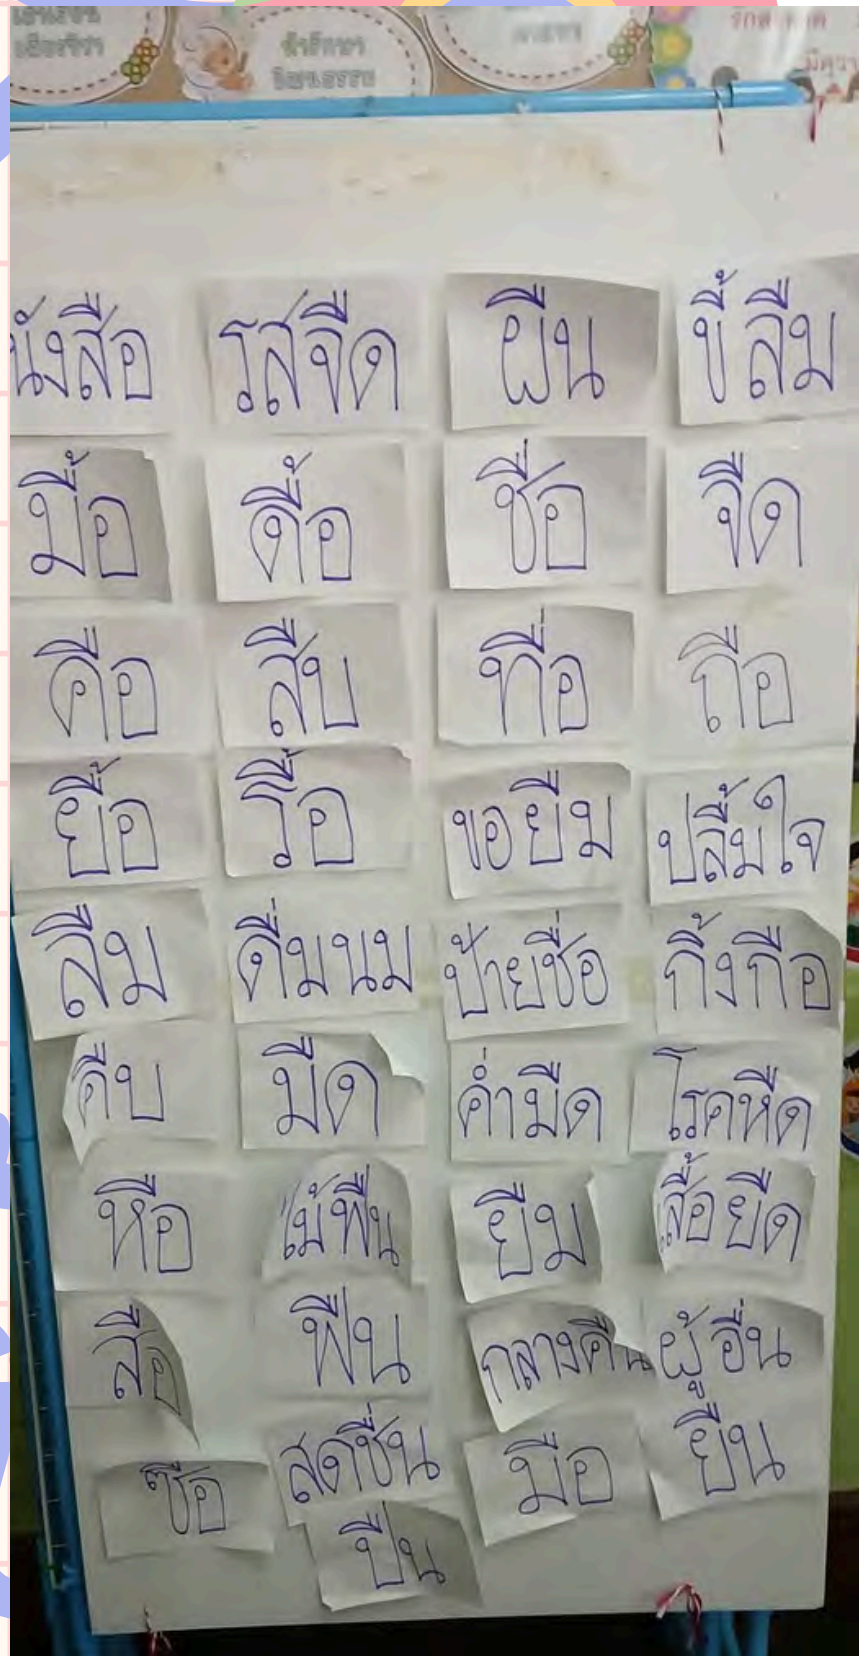 นังสือ รสจืด ผืน ขี้ลืม
มื้อ ดื้อ ชื่อ จืด
คือ สืบ ทื่อ ถือ
ยื้อ รื้อ ขอยืม ปลื้มใจ
ลืม ดื่มนม ป้ายชื่อ กิ้งกือ
คืบ มืด ค่ำมืด โรคหืด
หือ ไม้ฟืน ยืม เสื้อยืด
สือ ฟืน กลางคืน ผู้อื่น
ซือ สดชื่น มือ ยืน
ปืน